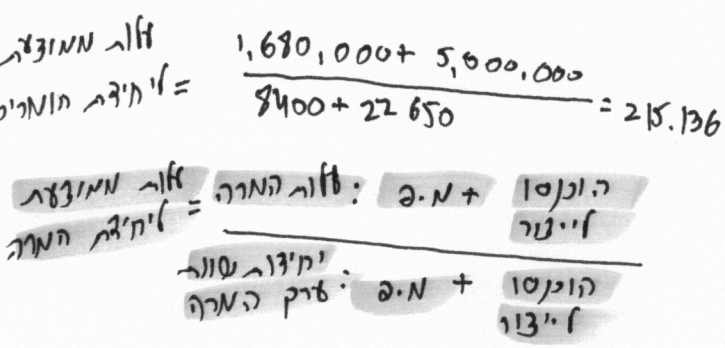 עלות ממוצעת ליחידת חומרים = 1,680,000 + 5,000,000
8400 + 22650 = 215.136
עלות ממוצעת ליחידת המרה = עלות המרה: מ.פ + הוכנסו לייצור
יחידות שוות ערך המרה: מ.פ + הוכנסו לייצור